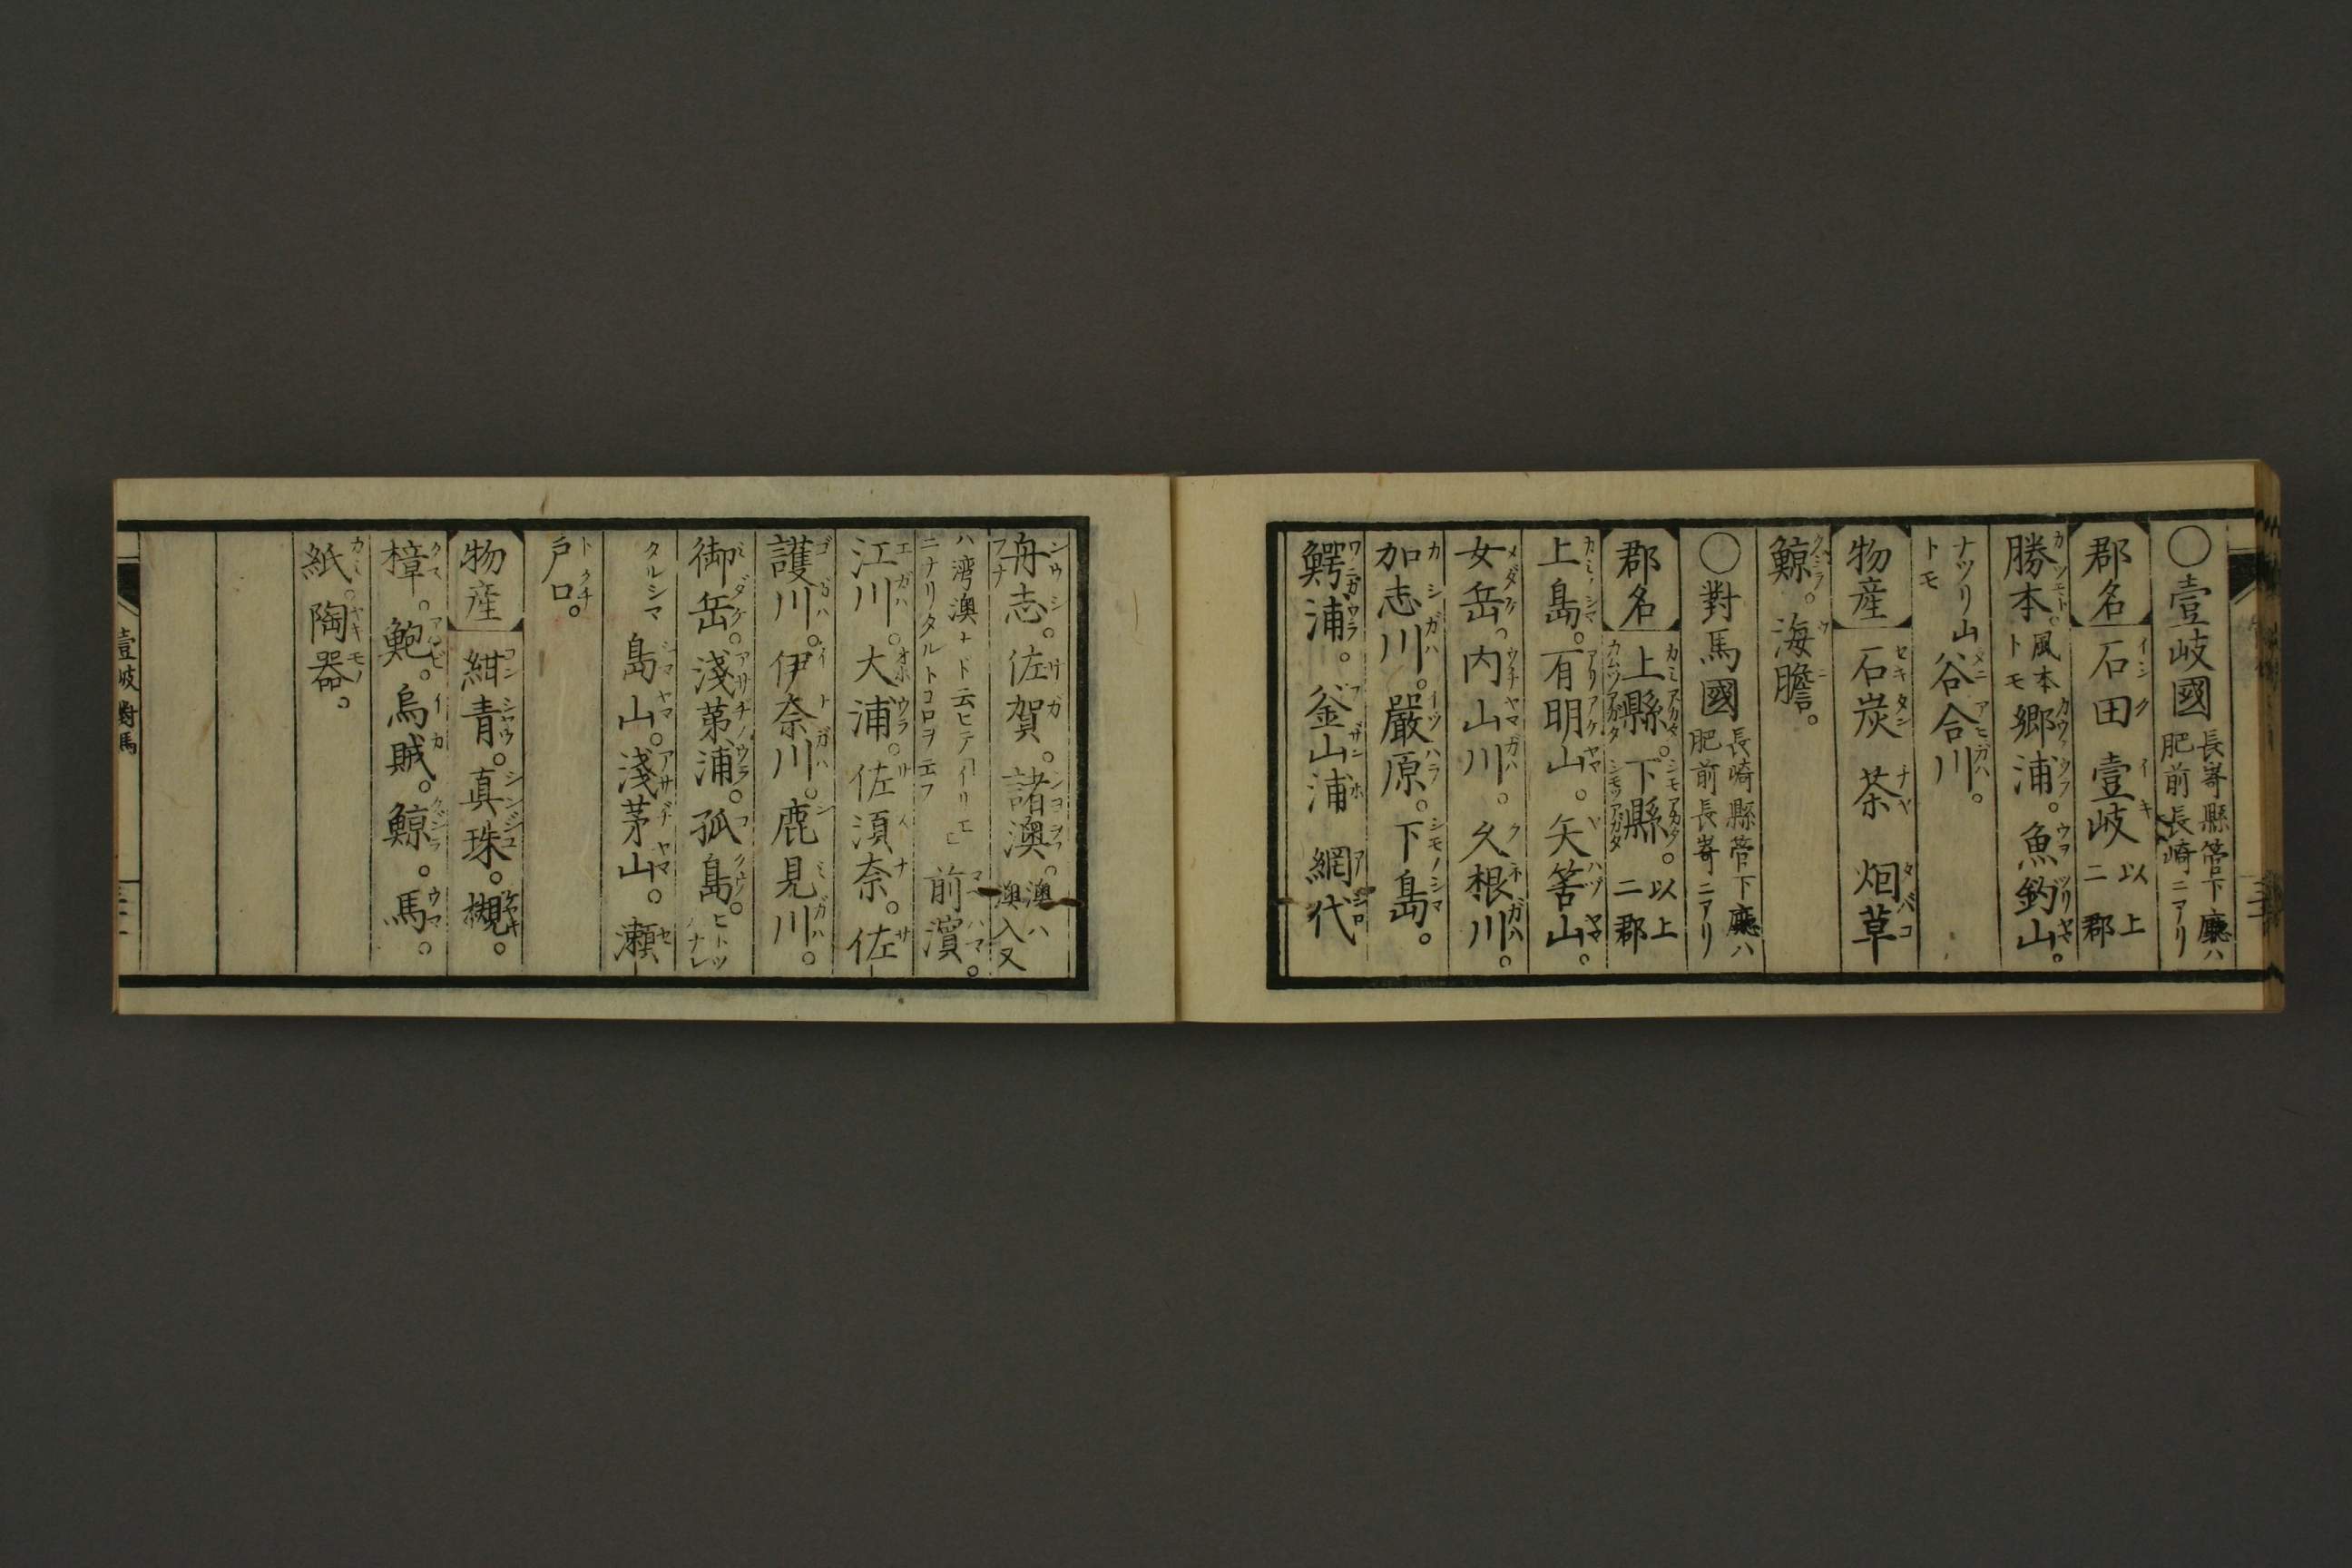 〇壹岐國 長嵜縣管下廳ハ肥前長崎ニアリ
郡名 石田 壹岐 以上二郡
勝本。風本トモ 郷浦。魚釣山。
ナツリ山トモ 谷合川。
物産 石炭 茶 烟草
鯨。海膽。
〇對馬國 長崎縣管下廳ハ肥前長嵜ニアリ
郡名 上縣。下縣。以上二郡
上島。有明山。矢筈山。
女岳。内山川。久根川。
加志川。嚴原。下島。
鰐浦。釜山浦 網代
舟志。佐賀。諸澳。澳ハ澳入又
ハ湾澳ナド云ヒテ「イリエ」ニナリタルトコロヲ云フ 前濵。
江川。大浦。佐須奈。佐
護川。伊奈川。鹿見川。
御岳。淺茅浦。孤島。ヒトツハナレ
タルシマ 島山。淺茅山。瀬
戸口。
物産 紺青。真珠。槻。
樟。鮑。烏賊。鯨。馬。
紙。陶器。
壹岐 對馬